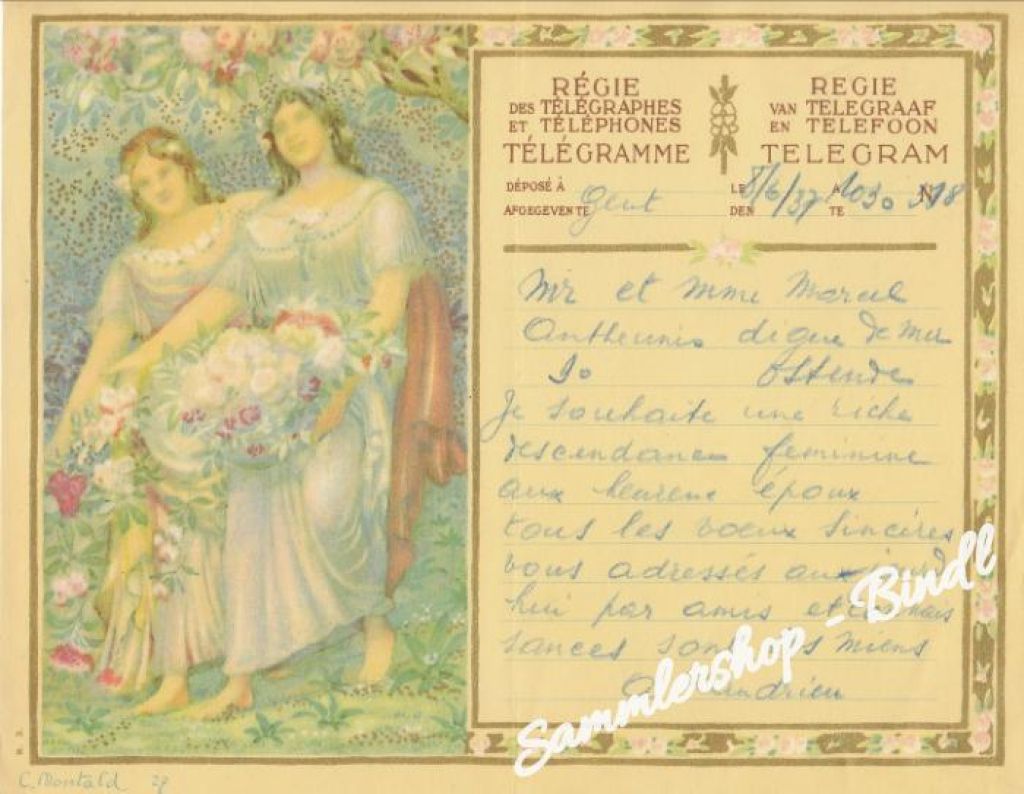 RÉGIE
DES TÉLÉGRAPHES
ET TÉLÉPHONES
TÉLÉGRAMME
REGIE
VAN TELEGRAAF
EN TELEFOON
TELEGRAM
DÉPOSÉ À
AFGEGEVEN TE
Gent
LE
DEN
8/6/37
A
TE
1030
N
Mr et Mme Marcel
Antheunis digue de mer
Ostende
Je souhaite une riche
descendance feminine
aux heureux époux
tous les voeux sincères
vous adressés
hui par amis et connais
sances sont miens
C. Montald 27
Sammlershop - Bindl